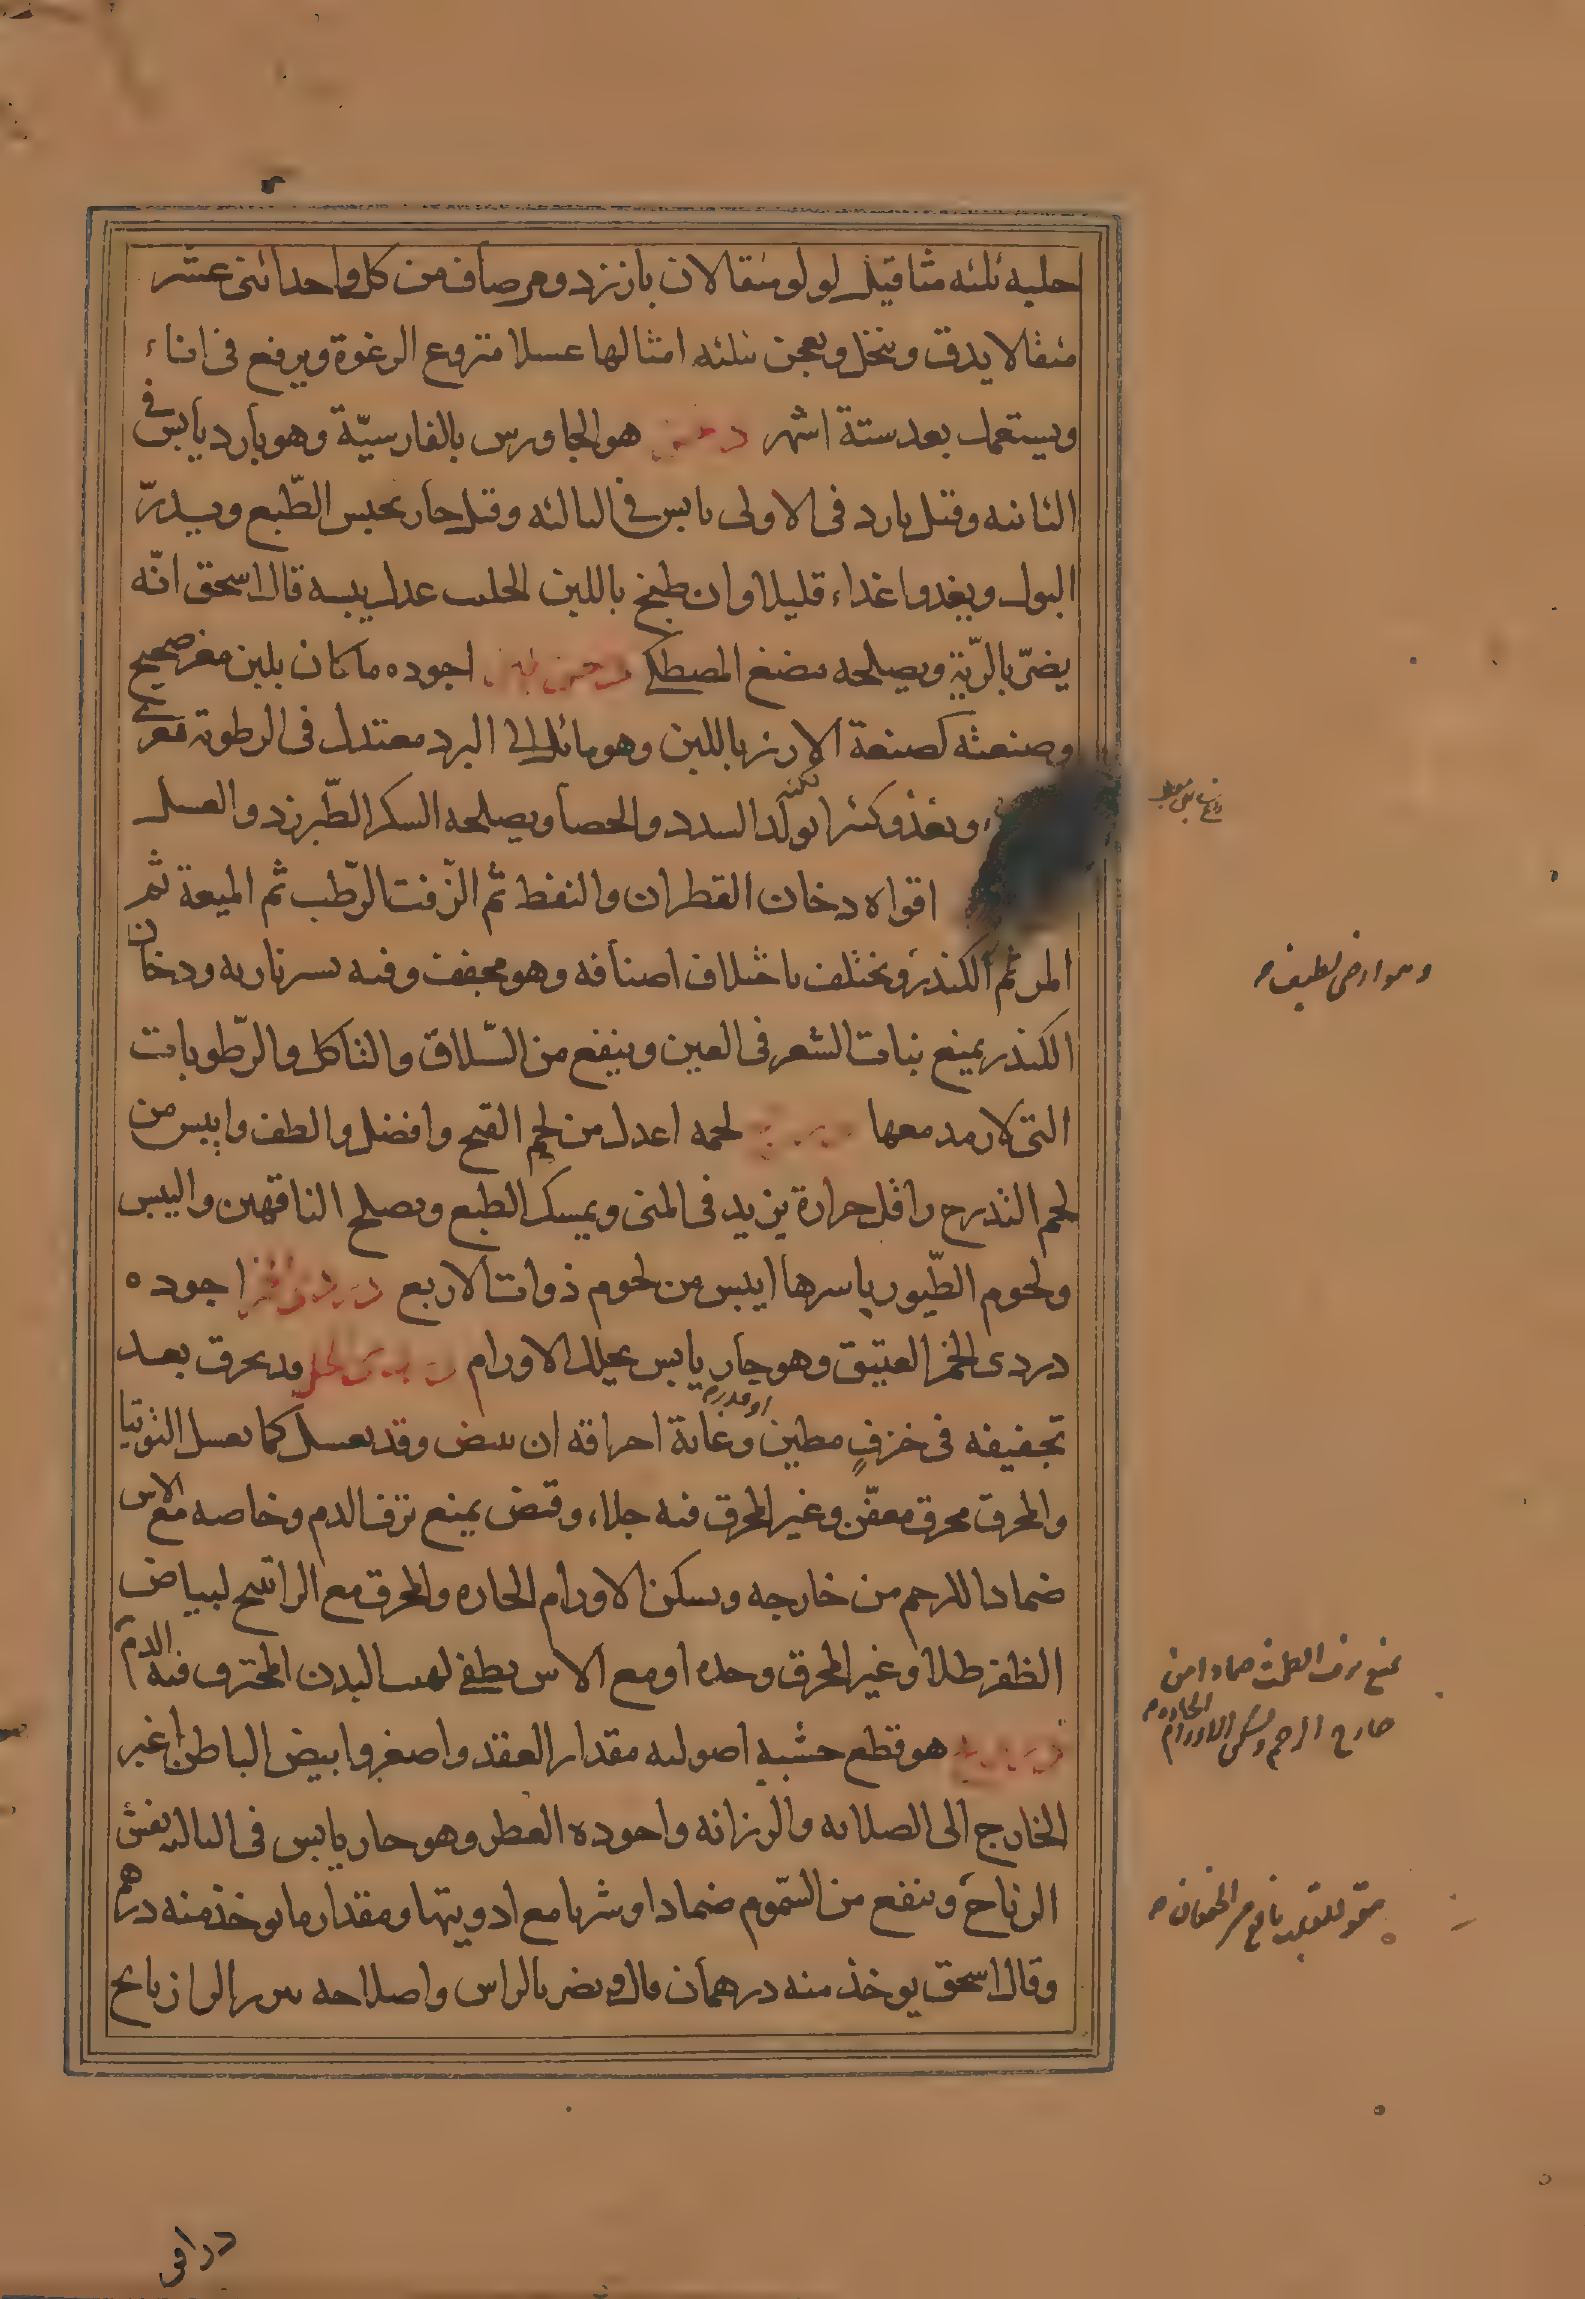 حلبه ثلثه مثاقيل لولو مثقالان بارزد ومر صاف من كل واحد اثنى عشر
مثقالا يدق وينخل ويعجن بثلثه امثالها عسلا منزوع الرغوة ويرفع فى اناء
ويستعمل بعد ستة اشهر دخن هو الجاورس بالفارسيّة وهو بارد يابس فى
الثانيه وقيل بارد فى الاولى يابس فى الثالثه وقيل حار يحبس الطّبع ويدرّ
البول ويغدوا غذاء قليلا وان طبخ باللبن الحليب عدل يبسه قال اسحق انّه
يضرّ بالرّية ويصلحه مضغ المصطكى اجوده ما كان بلبن معز صحيح
وصنعته كصنعة الارز باللبن وهو مائل الى البرد معتدل فى الرطوبة
ويغذو كثيرا لكنه يولّد السدد والحصأ ويصلحه السكر الطّبرزد والعسل
اقواه دخان القطران والنفط ثم الزّفت الرّطب ثم الميعة ثم
المر ثم الكندر ويختلف باختلاف اصنافه وهو مجفف وفيه يسير ناريه ودخان
الكندر يمنع نبات الشعر فى العين وينفع من السّلاق والتاكل والرّطوبات
التى لا رمد معها لحمه اعدل من لحم القبج وافضل والطف وايبس من
لحم التدرج واقل حرارة يزيد فى المنى ويمسك الطبع ويصلح الناقهين واليبس
ولحوم الطّيور باسرها ايبس من لحوم ذوات الاربع دردى الخمر اجوده
دردى الخمر العتيق وهو حار يابس يحلل الاورام دردى الخل وقد يحرق بعد
تجفيفه فى خزفٍ مطين او قدر وغاية احراقه ان يبيض وقد يغسل كما يغسل التوتيا
والمحرق محرق معفّن وغير المحرق فيه جلاء وقبض يمنع نزف الدم وخاصه مع الاس
ضمادا للرحم من خارجه ويسكن الاورام الحاره والمحرق مع الراتينج لبياض
الظفر طلاا وغير المحرق وحده او مع الاس يطفى لهيب البدن المحترق فيه الدم
هو قطع خشبيه اصوليه مقدار العقد واصغر وابيض الباطن اغبر
الخارج الى الصلابه والرزانه واجوده العطر وهو حار يابس فى الثالثه يفش
الرياح وينفع من السّموم ضمادا وشربا مع ادويتها ومقدار ما يوخذ منه درهم
وقال اسحق يوخذ منه درهمان قال ويضر بالراس واصلاحه بزر الرازيانج
وهو ارضى لطيف
يمنع نزف الطمث ضمادا من
خارج الرحم ويسكن الاورام الحاره
مقو للقلب نافع من الخفقان